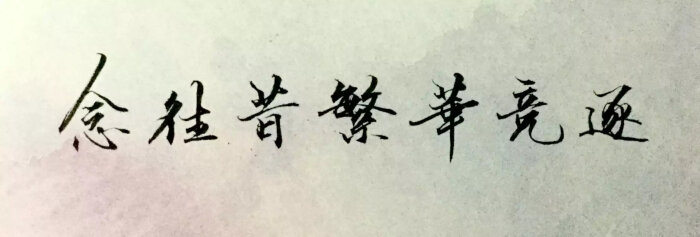 念往昔繁華竞逐